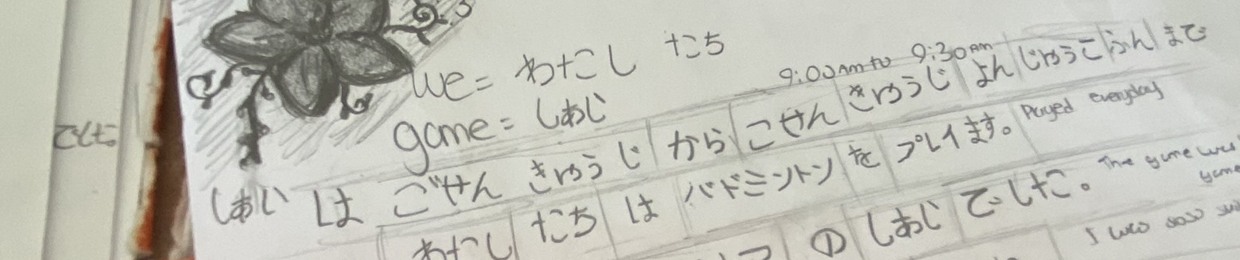 we = わたし たち
game = しあじ
9:00 am to 9:30am
しあい は ごせん きゅうじ から ごせん きゅうじ よん じゅうご ふん まで
わたし たち は バドミントン を プレイます。 Played everyday
の しあじ でした。 The game was
game
I was